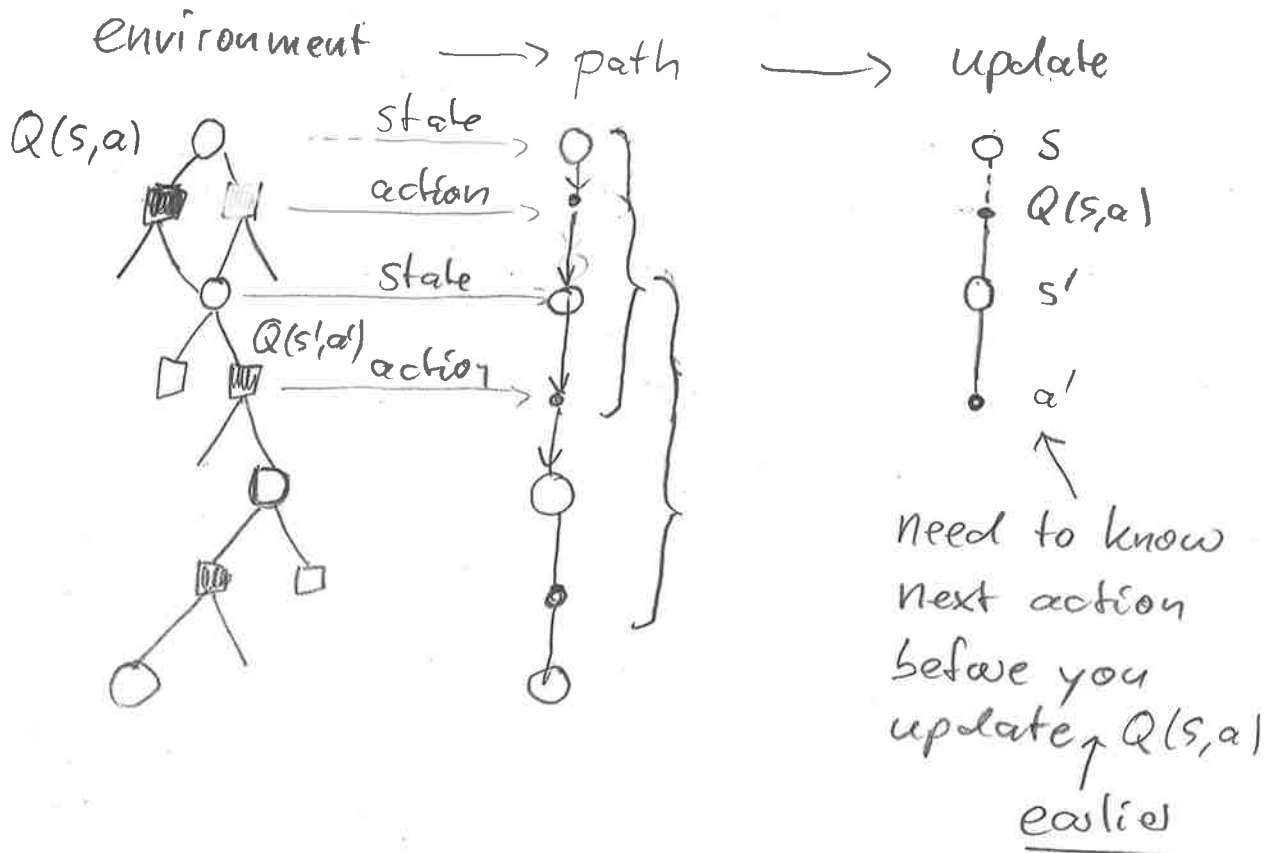 environment → path → update
Q(s,a)
state
S
action
Q(s,a)
state
s'
Q(s',a')
action
a'
need to know
next action
before you
update Q(s,a)
earlier